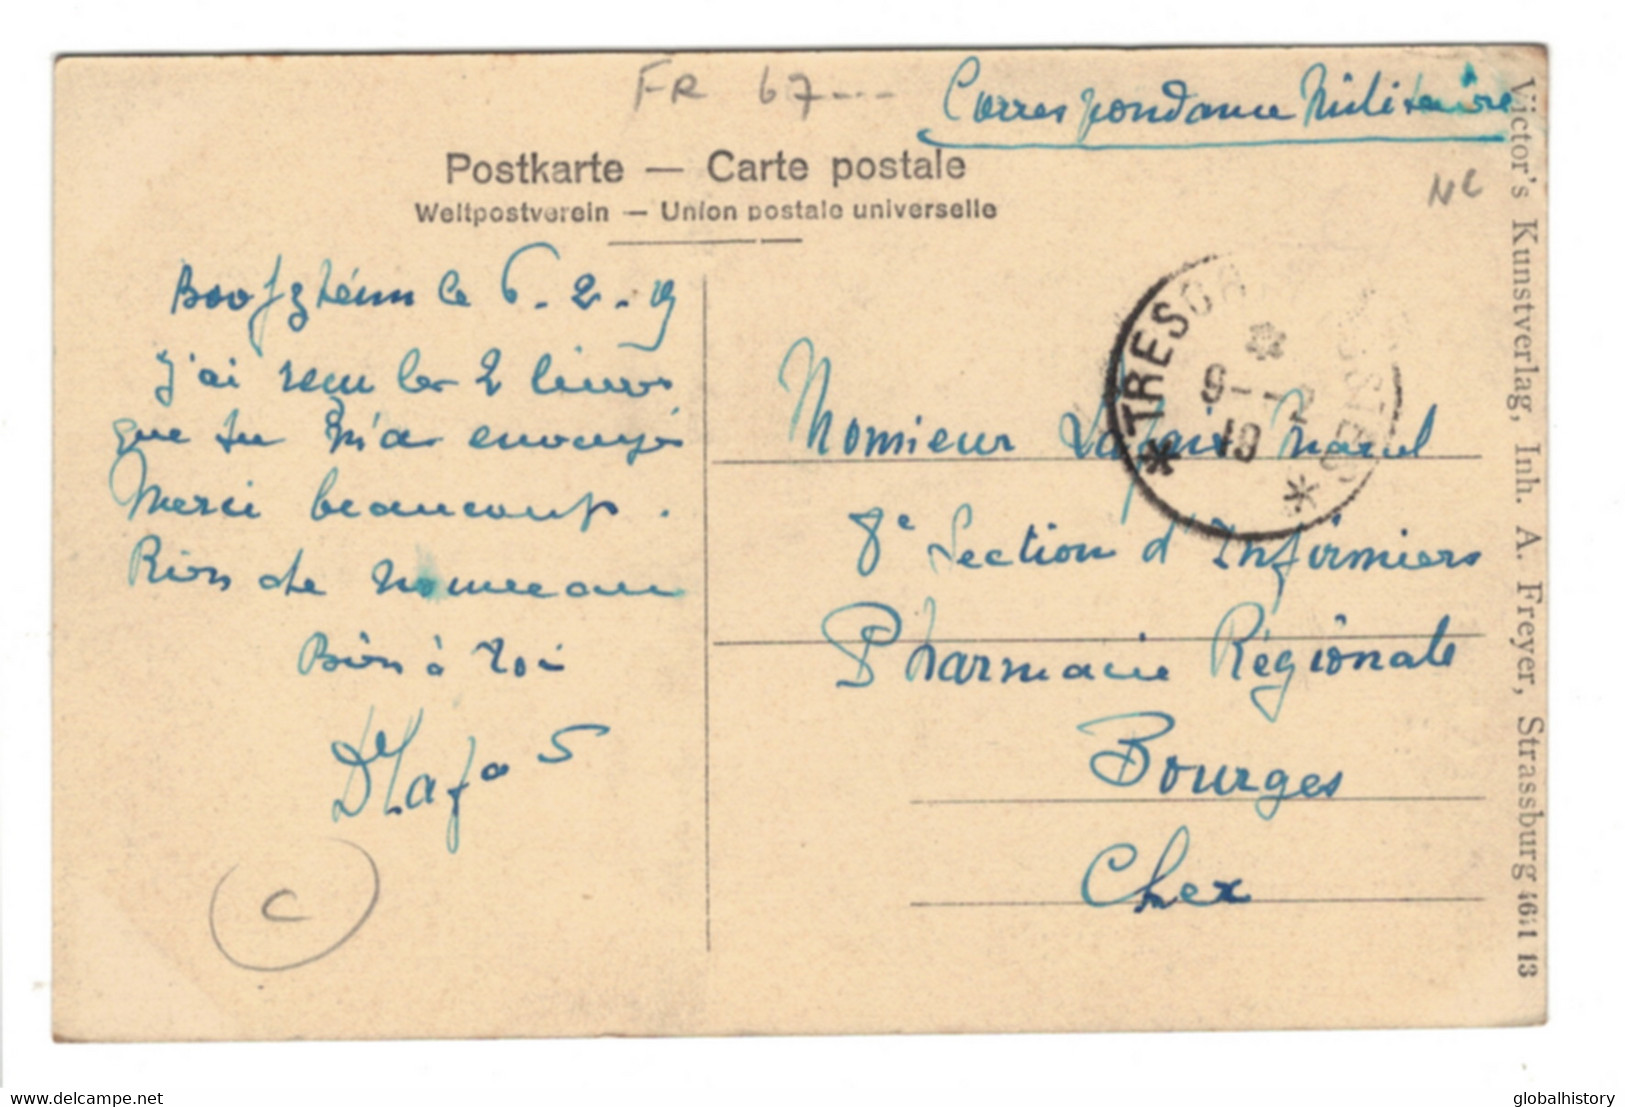 FR 67---
Correspondance Militaire
NC
Postkarte — Carte postale
Weltpostverein — Union postale universelle
Boofzheim le 6-2-19
J'ai reçu les 2 livres
que tu m'as envoyés
Merci beaucoup.
Rien de nouveau
Bien à toi
C
TRESOR POSTES
9 - 2
19
Monsieur Marcel
8e Section d'Infirmiers
Pharmacie Régionale
Bourges
Cher
Victor's Kunstverlag, Inh. A. Freyer, Strassburg 4641 13
the-memory.com
globalhistory